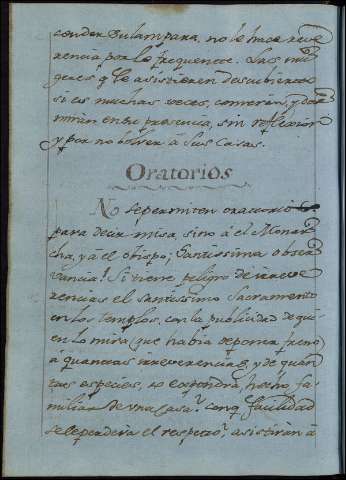 conder su lampara, no le hace reve
rencia por lo frequente. Las mu
geres q̃ le asistieren descubierto
si es muchas veces, comerán, y dor
mirán en su presencia, sin reflexion
y por no bolver á sus casas.
Oratorios
No se permiten oratorios
para decir misa, sino á el Monar
cha, y a el obispo; Santissima obser
vancia! Si tiene peligro de irreve
rencias el Santissimo Sacramento
en los templos, con la publicidad de qui
en lo mira (que havia de poner freno)
á quantas irreverencias, y de quan
tas especies, se expondrá, hecho fa
miliar de una casa? con q̃ facilidad
se le perderá el respeto? asistirán á